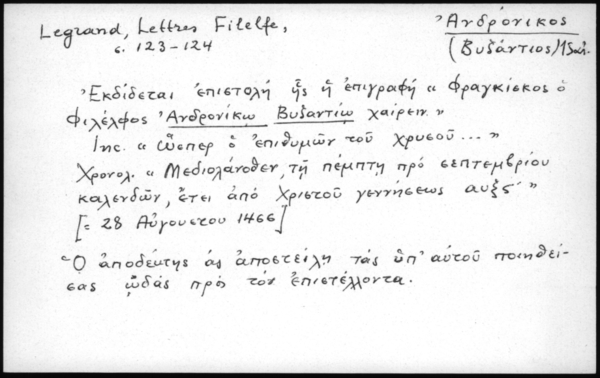 Legrand, Lettres Filelfe,
c. 123-124
Ἀνδρόνικος
(Βυζάντιος) 15 αἰ.
Ἐκδίδεται ἐπιστολὴ ἧς ἡ ἐπιγραφὴ « Φραγκίσκος ὁ
Φιλέλφος Ἀνδρονίκῳ Βυζαντίῳ χαίρειν. »
Inc. « ὥσπερ ὁ ἐπιθυμῶν τοῦ χρυσοῦ ... »
Χρονολ. « Μεδιολάνοθεν, τῇ πέμπτῃ πρό σεπτεμβρίου
καλενδῶν, ἔτει ἀπό Χριστοῦ γεννήσεως αυξς´ »
[= 28 Αὐγούστου 1466]
Ὁ ἀποδέκτης ἀς ἀποστείλῃ τάς ὑπ' αὐτοῦ ποιηθεί-
σας ᾠδάς πρός τόν ἐπιστέλλοντα.